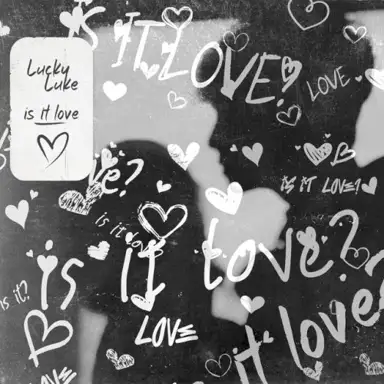 IS IT LOVE?
Lucky
Luke
is it love
LOVE
ve?
IS IT LOVE?
is it love
is it love?
is it?
LOVE
it love
LOVE